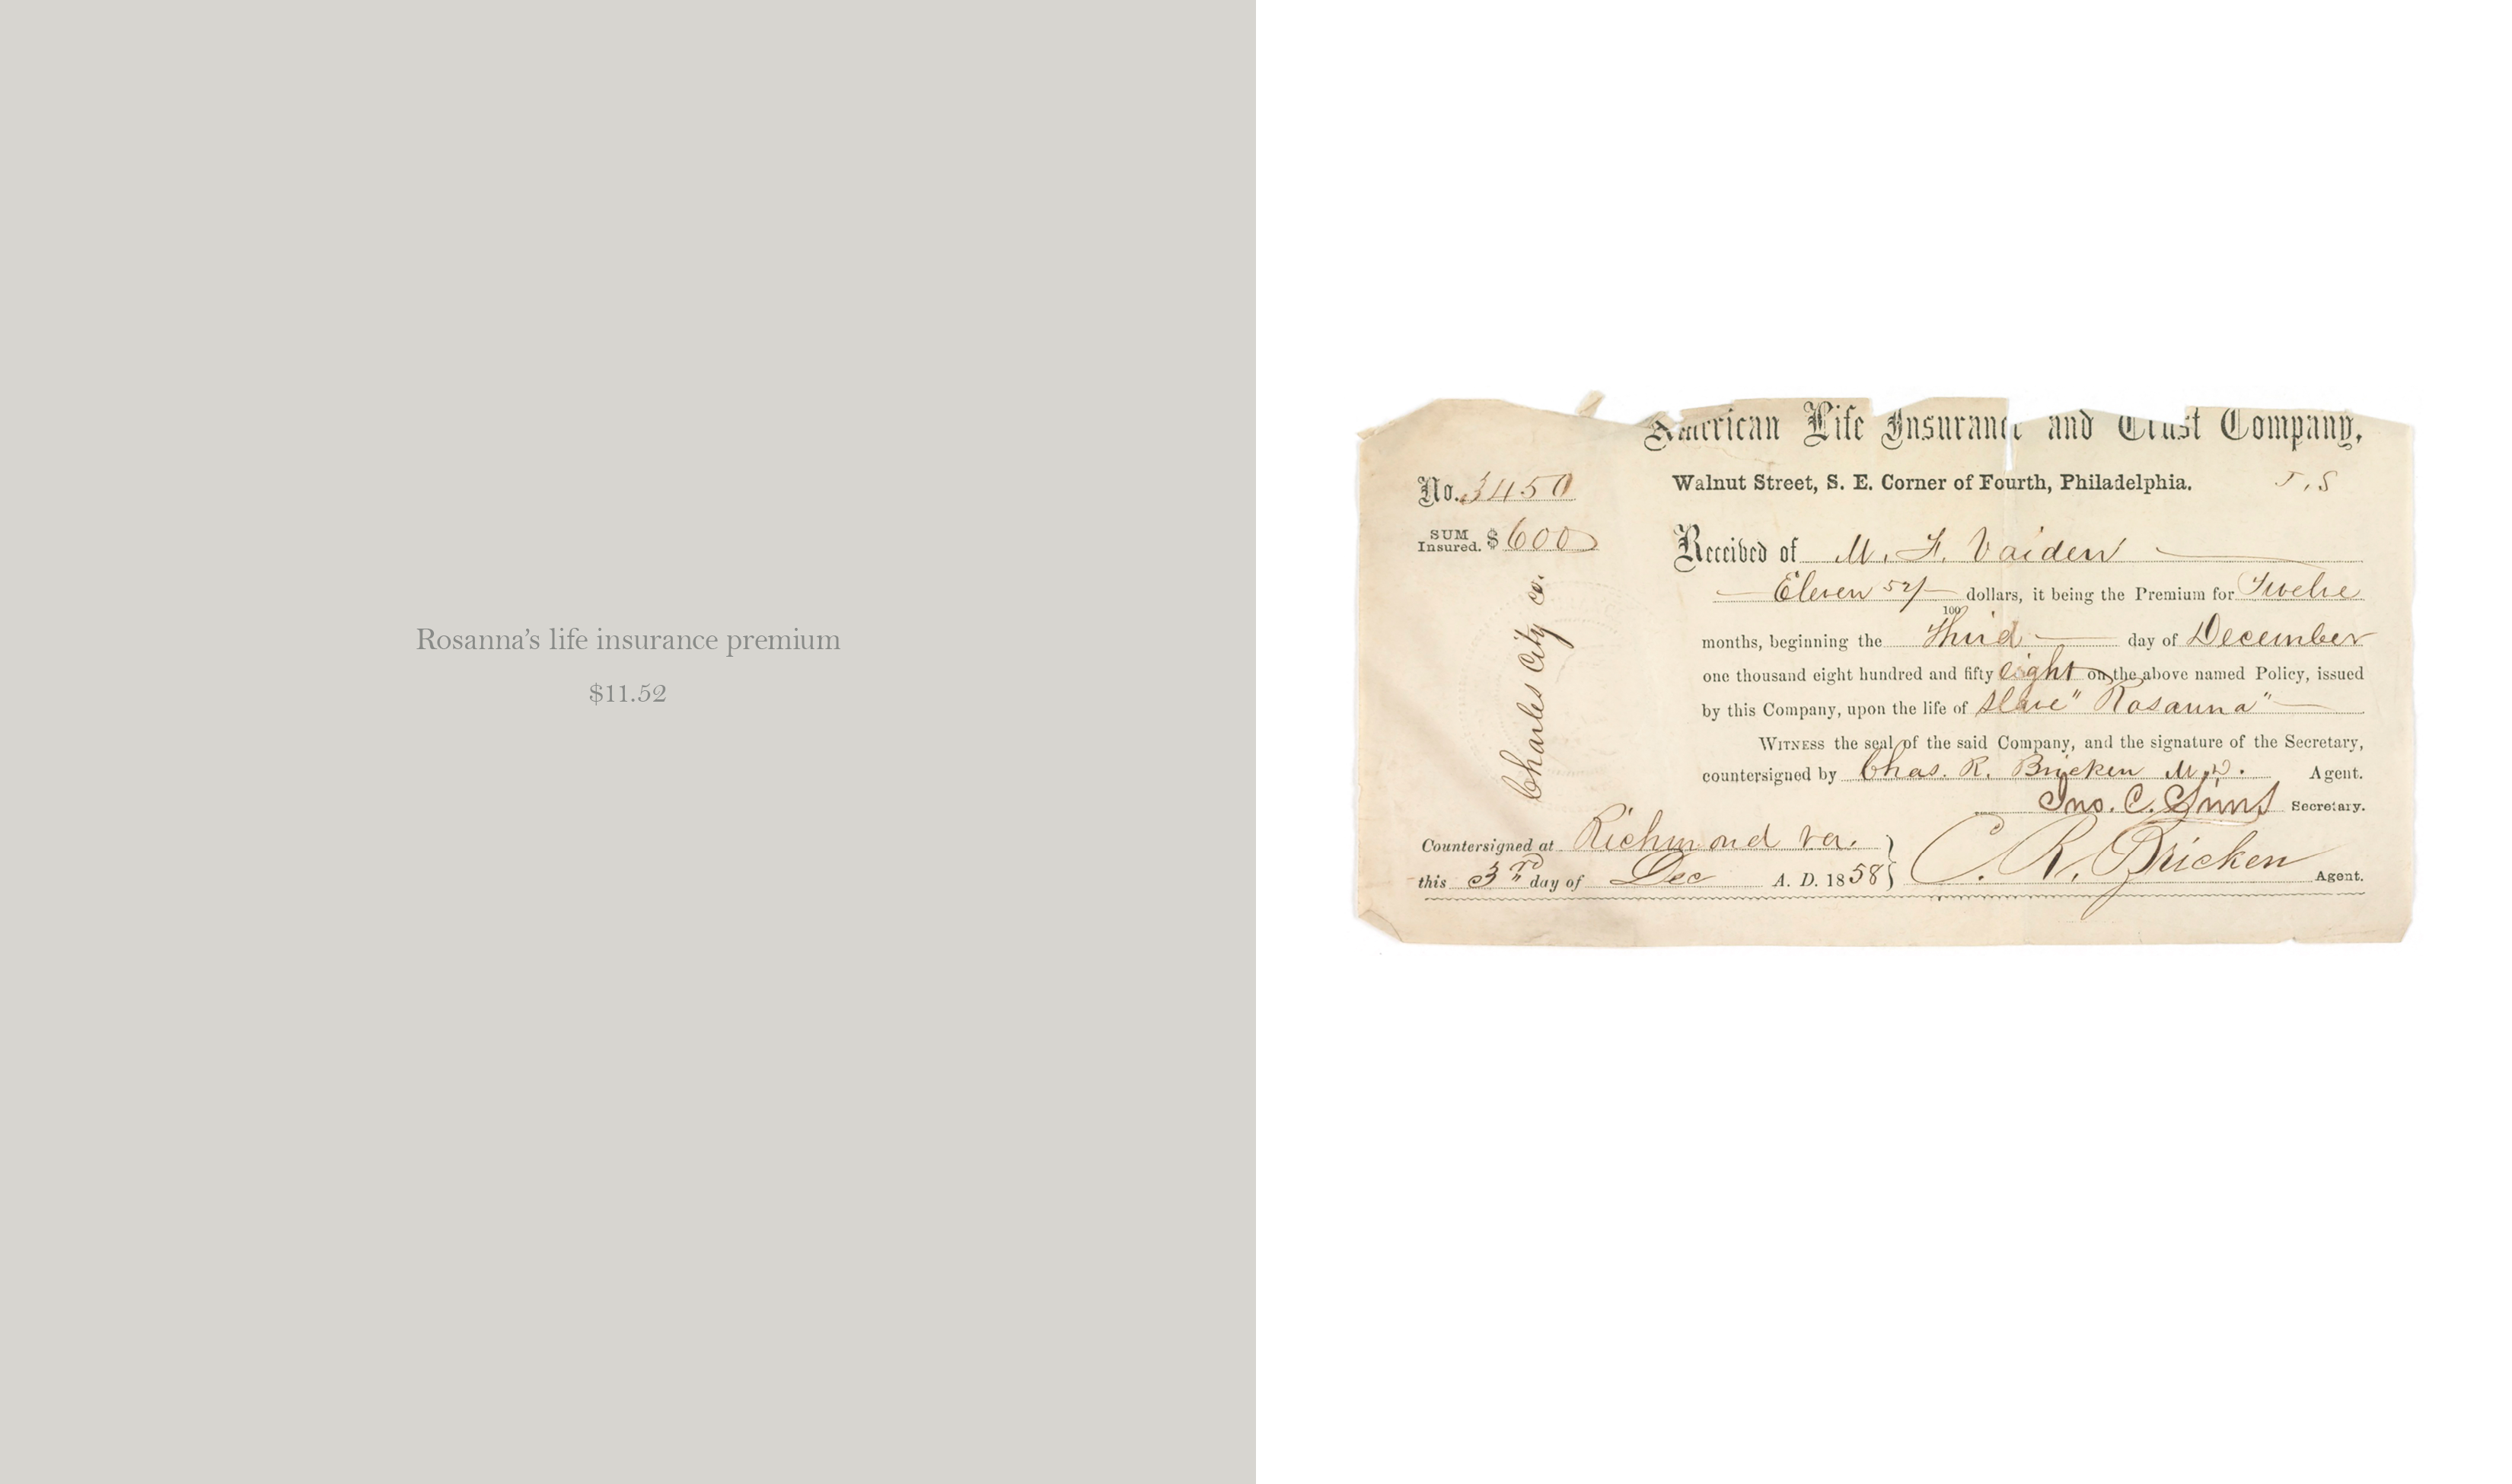 Rosanna's life insurance premium
$11.52
American Life Insurance and Trust Company,
No. 3450
Walnut Street, S. E. Corner of Fourth, Philadelphia.
SUM Insured. $ 600
Received of M. F. Vaiden
Eleven 52/100 dollars, it being the Premium for Twelve
months, beginning the Third day of December
one thousand eight hundred and fifty eight on the above named Policy, issued
by this Company, upon the life of slave "Rosanna"
WITNESS the seal of the said Company, and the signature of the Secretary,
countersigned by Chas. R. Bricken M.D. Agent.
Jno. C. Sims Secretary.
Charles City co.
Countersigned at Richmond Va.
this 3rd day of Dec A. D. 1858
C. R. Bricken Agent.